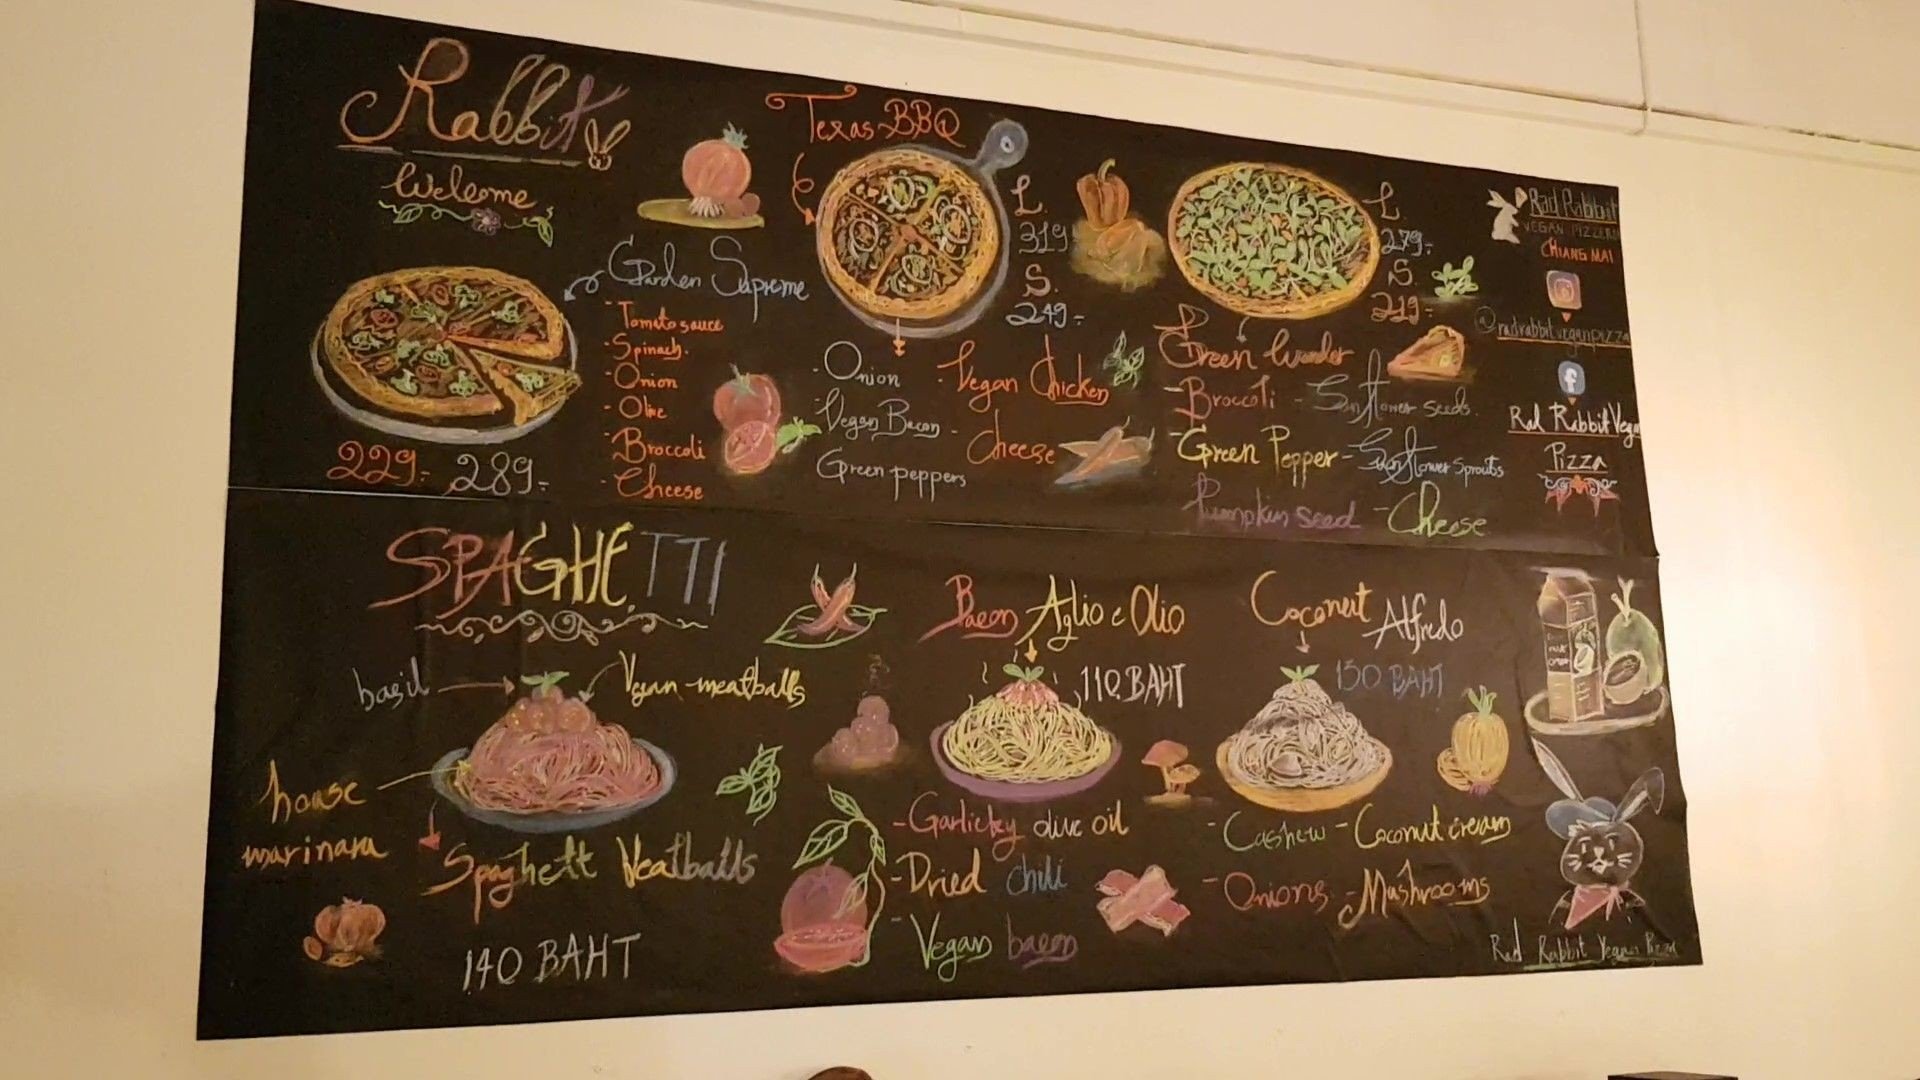 Rabbit
Welcome
Garden Supreme
- Tomato sauce
- Spinach.
- Onion
- Olive
- Broccoli
- Cheese
229.- 289.-
Texas BBQ
L.
319
S.
249.-
- Onion
- Vegan Chicken
- Vegan Bacon
- Cheese
Green peppers
L.
279.-
S.
219.-
Green Wonder
- Broccoli - Sunflower seeds.
- Green Pepper - Sunflower Sprouts
Pumpkin seed - Cheese
Rad Rabbit
VEGAN PIZZERIA
CHIANG MAI
@radrabbit.veganpizza
f
Rad Rabbit Vegan
Pizza
SPAGHETTI
basil
Vegan meatballs
house
marinara
Spaghetti Veatballs
140 BAHT
Bacon Aglio e Olio
110 BAHT
- Garlicky olive oil
- Dried chili
- Vegan bacon
Coconut Alfredo
130 BAHT
- Cashew - Coconut cream
- Onions - Mushrooms
Rad Rabbit Vegan Pizza